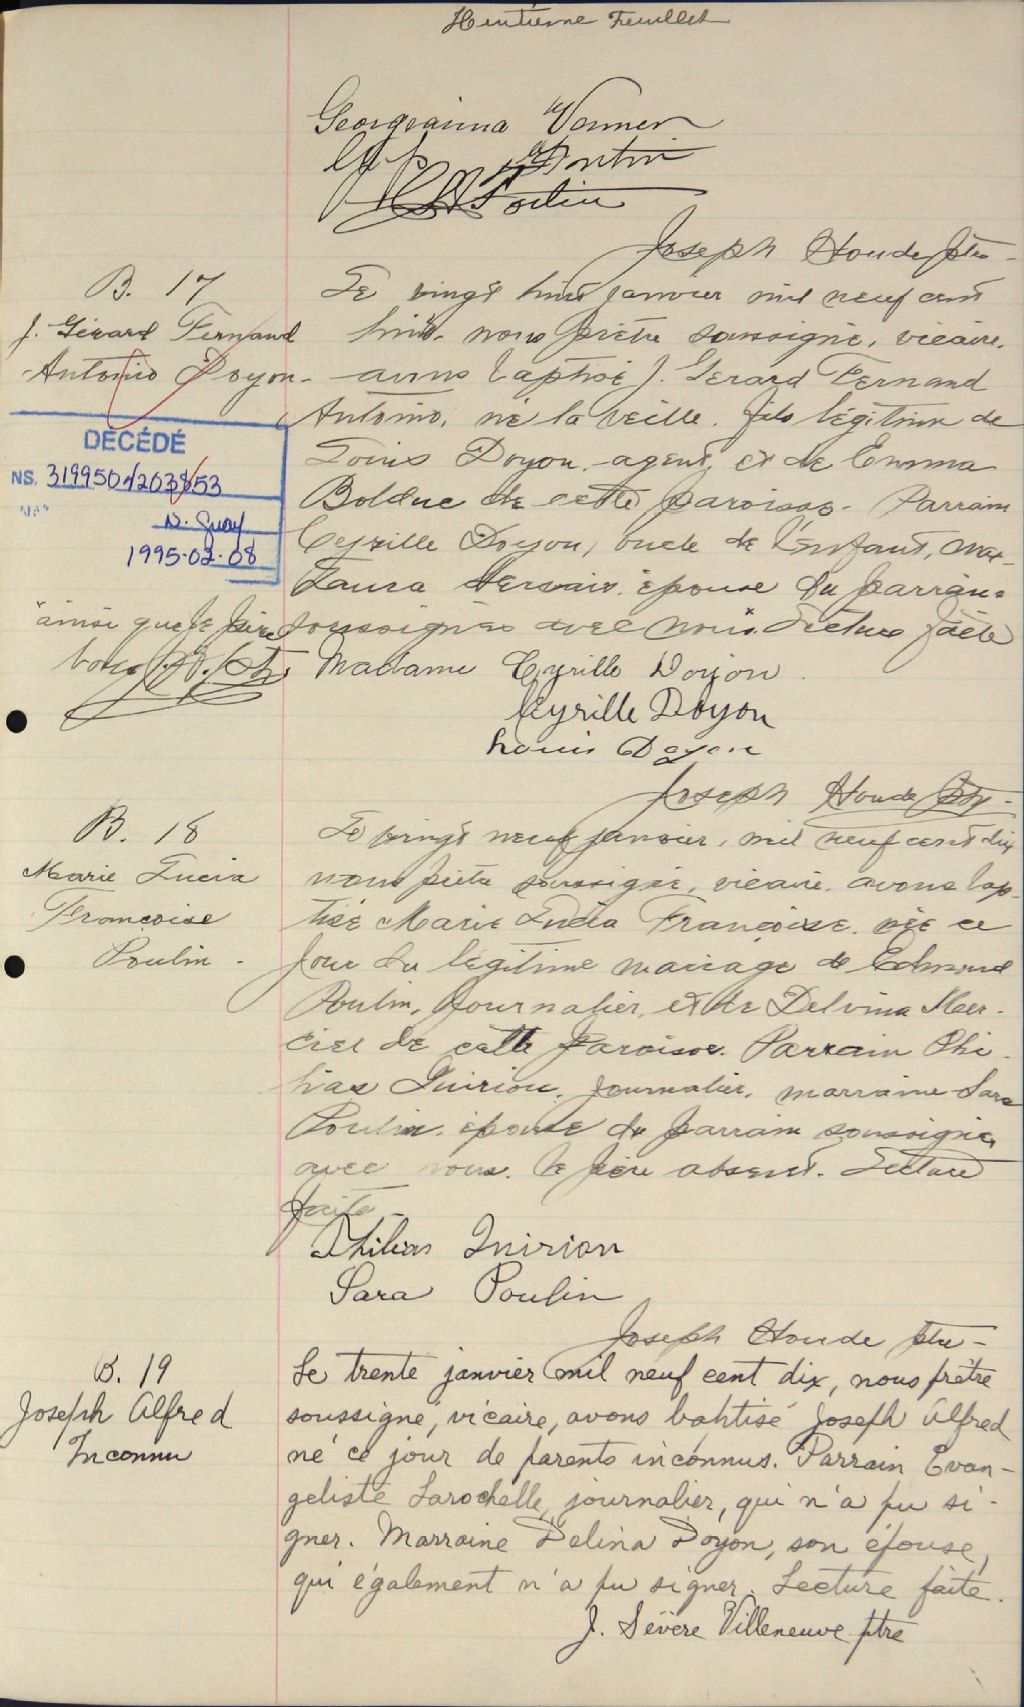 Huitième Feuillet
Georgeanna Vermer
Fortin
Fortin
Joseph Houde Ptre -
B. 17
J. Gérard Fernand
Antonio Doyon -
DÉCÉDÉ
NS. 319950 1203853
N. Guay
1995-02-08
ainsi que le père
Le vingt huit janvier mil neuf cent
nous prêtre soussigné, vicaire,
avons baptisé J. Gerard Fernand
Antonio, né la veille, fils légitime de
Louis Doyon, agent, et de Emma
Bolduc de cette paroisse. Parrain
Cyrille Doyon, oncle de l'enfant, mar-
Laura épouse du parrain
soussignés avec nous. Lecture faite
Madame Cyrille Doyon
Cyrille Doyon
Louis Doyon
Joseph Houde Ptr -
B. 18
Marie Lucia
Françoise
Poulin -
Le vingt neuf janvier, mil neuf cent dix
nous prêtre soussigné, vicaire, avons bap-
tisé Marie Lucia Françoise, née ce
jour du légitime mariage de Edmond
Poulin, journalier, et de Delvina Mer-
cier de cette paroisse. Parrain Phi-
lias Quirion, journalier, marraine Sara
Poulin, épouse du parrain soussignés
avec nous. le père absent. Lecture
faite
Philias Quirion
Sara Poulin
Joseph Houde ptre -
B. 19
Joseph Alfred
Inconnu
Le trente janvier mil neuf cent dix, nous prêtre
soussigné, vicaire, avons baptisé Joseph Alfred
né ce jour de parents inconnus. Parrain Evan-
geliste Larochelle, journalier, qui n'a pu si-
gner. Marraine Delina Doyon, son épouse,
qui également n'a pu signer. Lecture faite.
J. Sévère Villeneuve ptre